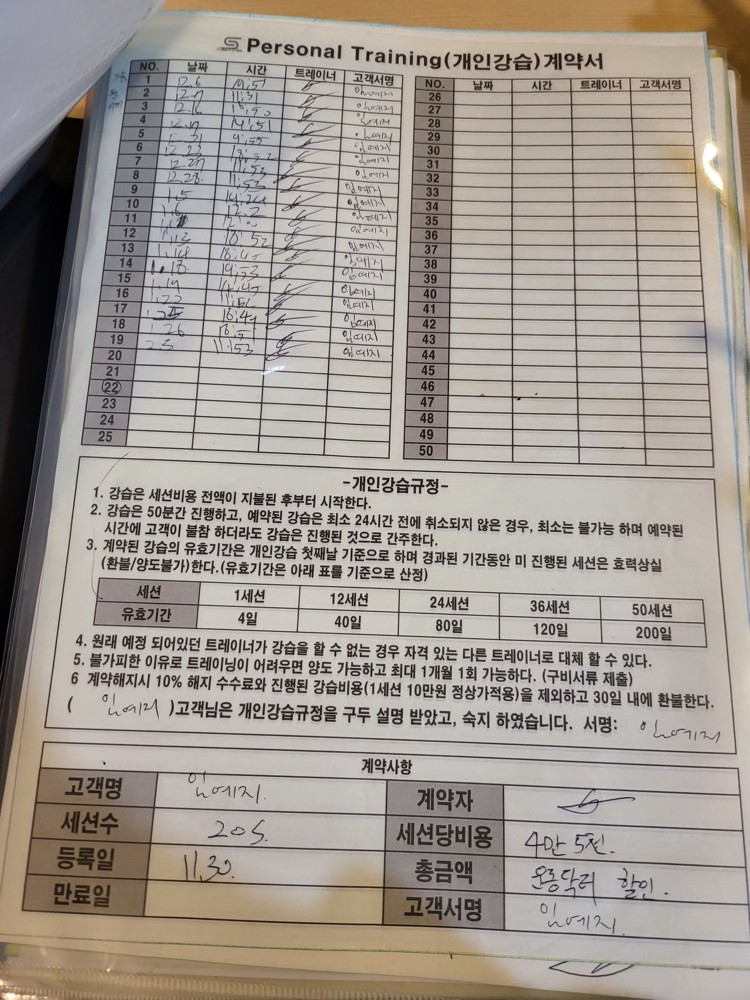 Personal Training(개인강습)계약서
NO. 날짜 시간 트레이너 고객서명
1 12.6
2 12.7 11:51 임예지
3 12.16 임예지
4 14:51 임예지
5 임예지
6 12.22 임예지
7 12.27 임예지
8 12.28 11:53 임예지
9 1.5 14:24 임예지
10 1.6 임예지
11 임예지
12 1.13 18:52 임예지
13 1.14 임예지
14 1.18 19:53 임예지
15 1.19 임예지
16 1.22 임예지
17 1.25 16:49 임예지
18 1.26 임예지
19 2.5 11:53 임예지
20
21
22
23
24
25
NO. 날짜 시간 트레이너 고객서명
26
27
28
29
30
31
32
33
34
35
36
37
38
39
40
41
42
43
44
45
46
47
48
49
50
-개인강습규정-
1. 강습은 세션비용 전액이 지불된 후부터 시작한다.
2. 강습은 50분간 진행하고, 예약된 강습은 최소 24시간 전에 취소되지 않은 경우, 최소는 불가능 하며 예약된
시간에 고객이 불참 하더라도 강습은 진행된 것으로 간주한다.
3. 계약된 강습의 유효기간은 개인강습 첫째날 기준으로 하며 경과된 기간동안 미 진행된 세션은 효력상실
(환불/양도불가)한다.(유효기간은 아래 표를 기준으로 산정)
세션 1세션 12세션 24세션 36세션 50세션
유효기간 4일 40일 80일 120일 200일
4. 원래 예정 되어있던 트레이너가 강습을 할 수 없는 경우 자격 있는 다른 트레이너로 대체 할 수 있다.
5. 불가피한 이유로 트레이닝이 어려우면 양도 가능하고 최대 1개월 1회 가능하다. (구비서류 제출)
6 계약해지시 10% 해지 수수료와 진행된 강습비용(1세션 10만원 정상가적용)을 제외하고 30일 내에 환불한다.
( 임예지 )고객님은 개인강습규정을 구두 설명 받았고, 숙지 하였습니다. 서명: 임예지
계약사항
고객명 임예지. 계약자
세션수 20S. 세션당비용 4만 5천.
등록일 11.30. 총금액 운동닥터 할인.
만료일 고객서명 임예지.